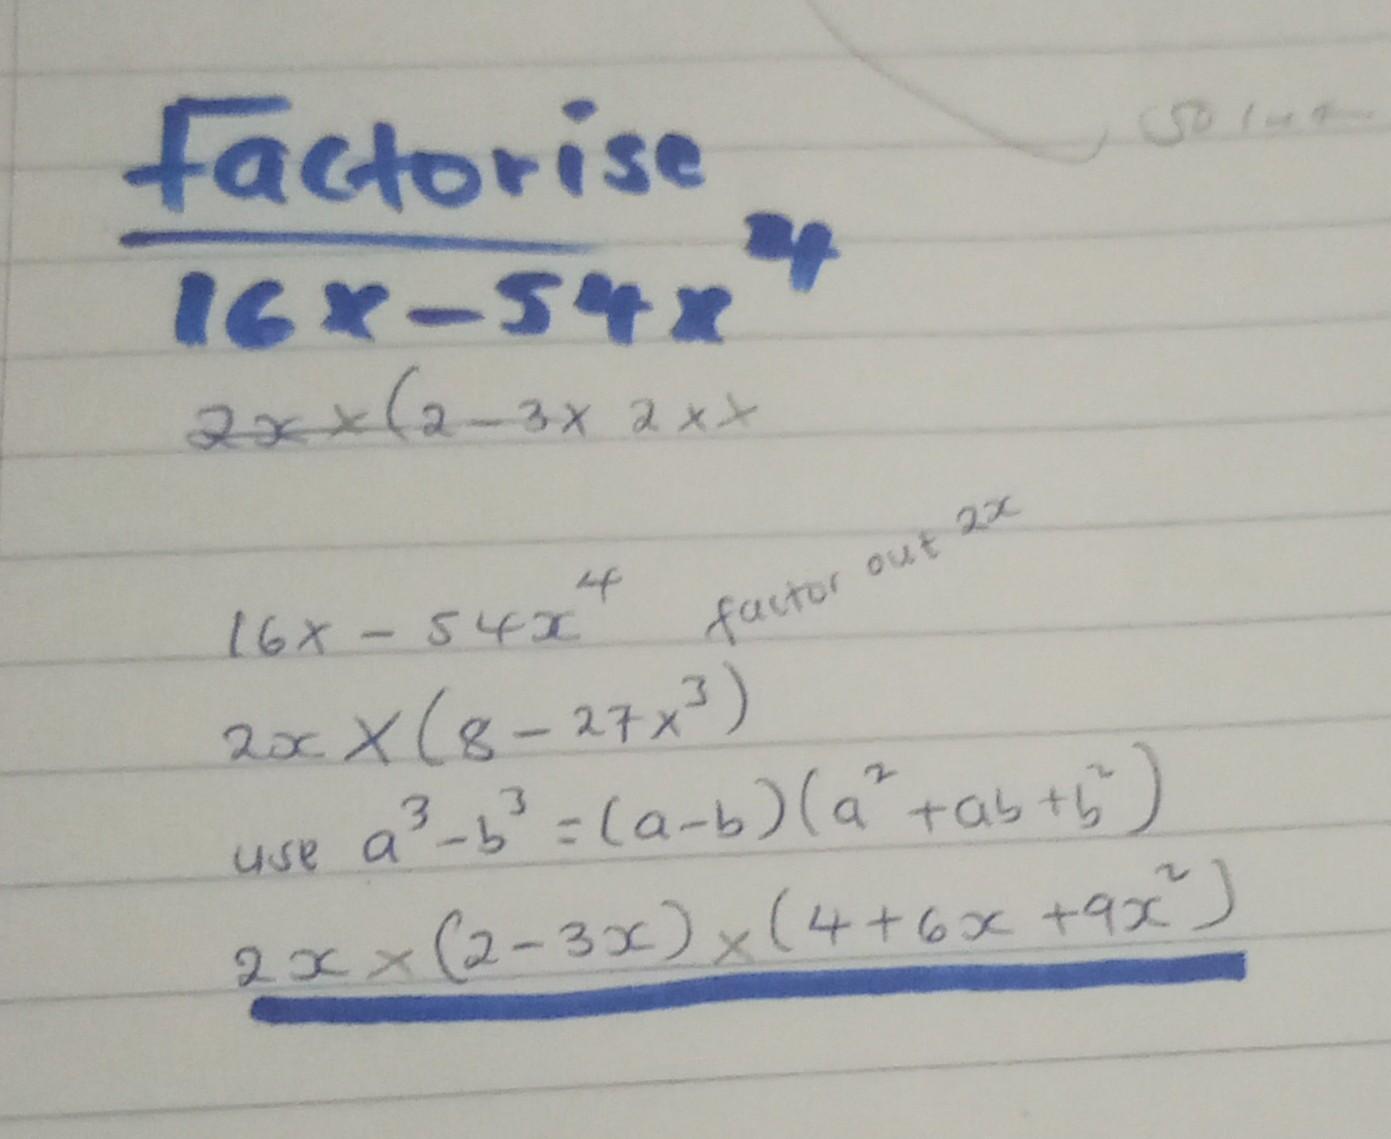 Factorise
16x-54x⁴
2x×(2-3x 2xx
16x - 54x⁴ factor out 2x
2x×(8-27x³)
use a³-b³=(a-b)(a²+ab+b²)
2x×(2-3x)×(4+6x+9x²)